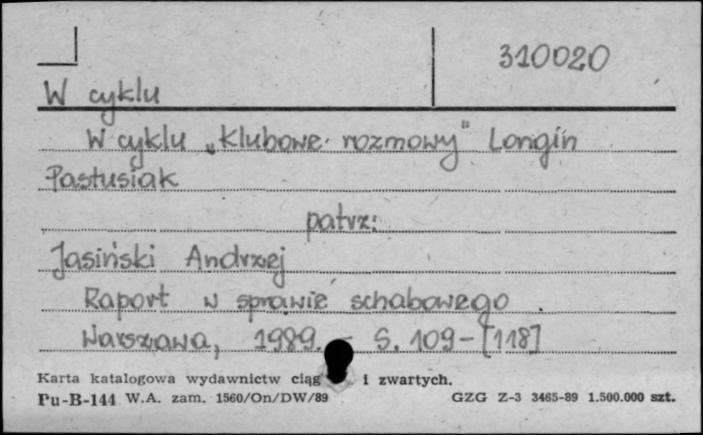 310020
W cyklu
W cyklu „Klubowe rozmowy" Longin
Pastusiak
patrz:
Jasiński Andrzej
Raport w sprawie schabowego.
Warszawa, 1989. – S. 109-[118]
Karta katalogowa wydawnictw ciąg i zwartych.
Pu-B-144 W.A. zam. 1560/On/DW/89 GZG Z-3 3465-89 1.500.000 szt.